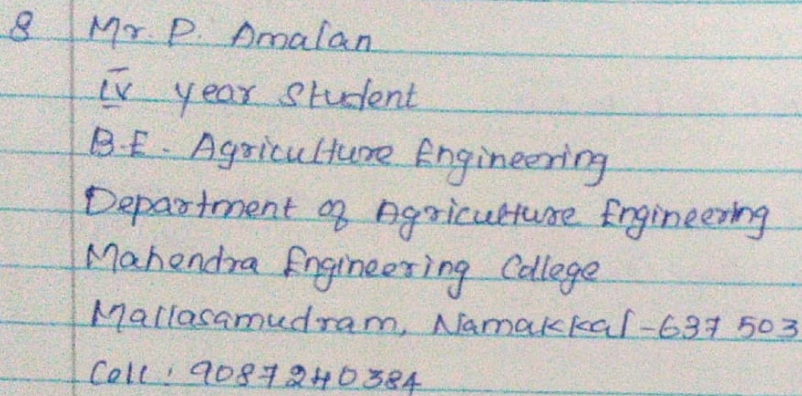 8 Mr. P. Amalan
IV year Student
B.E - Agriculture Engineering
Department of Agriculture Engineering
Mahendra Engineering College
Mallasamudram, Namakkal - 637 503
Cell : 9087240384